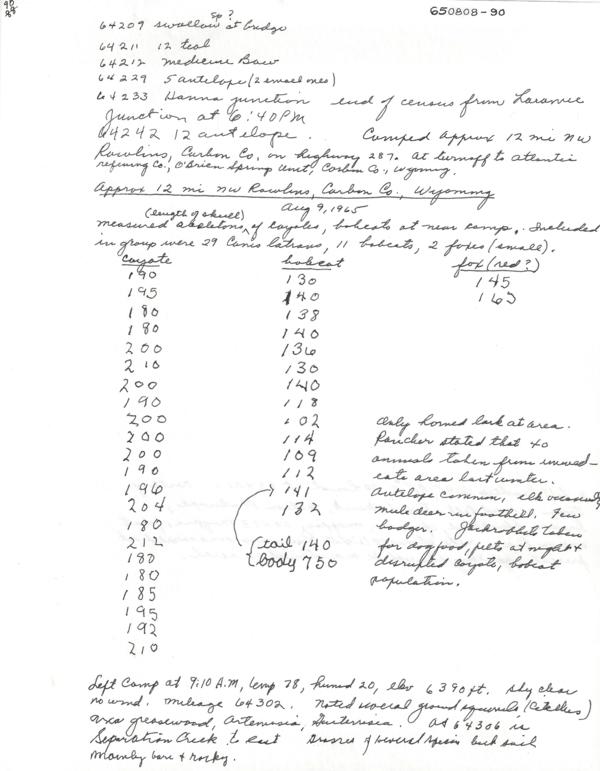 650808-90
sp?
64209 swallow at bridge
64211 12 teal
64212 medicine Bow
64229 5 antelope (2 small ones)
64233 Hanna junction end of census from Laramie
Junction at 6:40 PM
64242 12 antelope. Camped approx 12 mi NW
Rawlins, Carbon Co, on highway 287. at turnoff to atlantic
refining Co., O'Brien Spring Unit, Carbon Co., Wyoming.
Approx 12 mi NW Rawlins, Carbon Co., Wyoming
Aug 9, 1965
(length of skull)
measured skeletons of coyotes, bobcats at near camp. Included
in group were 29 Canis latrans, 11 bobcats, 2 foxes (small).
coyote bobcat fox (red?)
190 130 145
195 140 165
180 138
180 140
200 136
210 130
200 140
190 118
200 102 Only horned lark at area.
200 114 Rancher stated that 40
200 109 animals taken from immed-
190 112 iate area last winter.
196 141 Antelope common, elk occasionally
204 132 mule deer in foothill. Few
180 badger. Jackrabbits taken
212 (tail 140 for dog food, pelts at night &
180 body 750 disrupted coyote, bobcat
180 population.
185
195
192
210
Left Camp at 9:10 A.M, temp 78, humid 20, elev 6390 ft. sky clear
no wind. mileage 64302. Noted several ground squirrels (Citellus)
area greasewood, Artemisia, At 64306 is
Separation Creek to east of several species but soil
mainly bare & rocky.